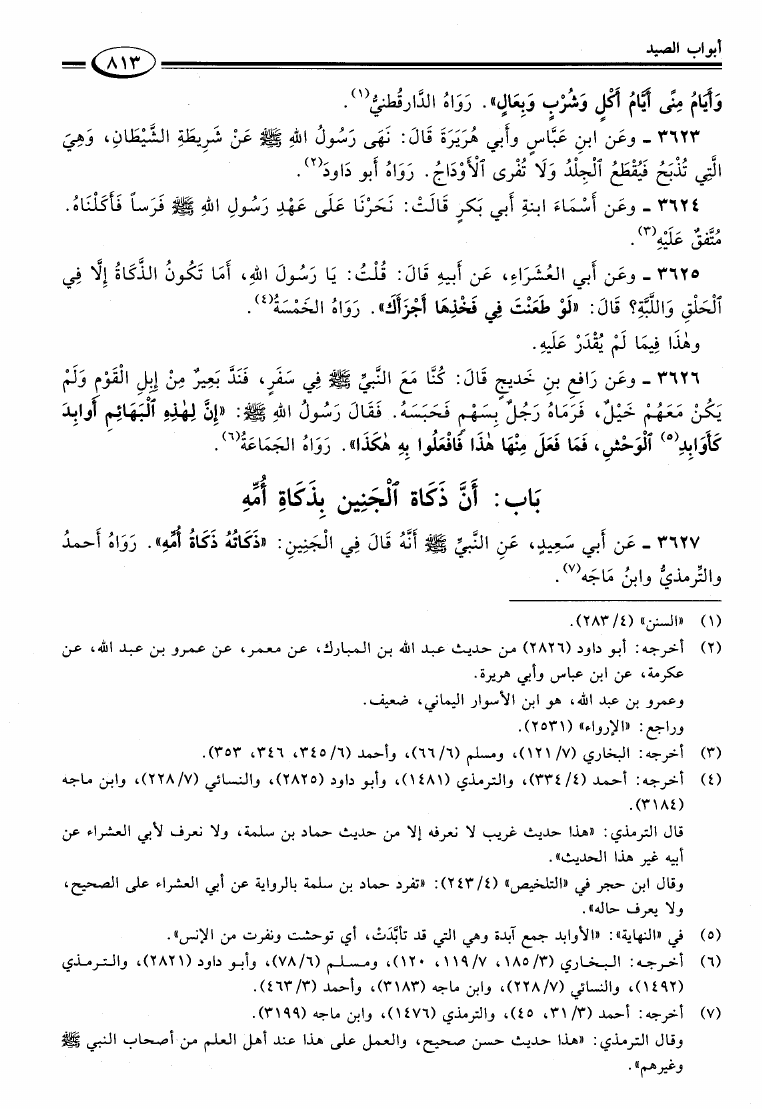 أبواب الصيد
٨١٣
وَأَيَّامُ مِنًى أَيَّامُ أَكْلٍ وَشُرْبٍ وَبِعَالٍ». رَوَاهُ الدَّارقُطنيُّ(١).
٣٦٢٣ ـ وعَن ابنِ عَبَّاسٍ وأَبي هُرَيَرَةَ قَالَ: نَهَى رَسُولُ اللهِ ﷺ عَنْ شَرِيطَةِ الشَّيْطَانِ، وَهِيَ
الَّتِي تُذْبَحُ فَيُقْطَعُ ٱلْجِلْدُ وَلَا تُفْرى ٱلْأَوْدَاجُ. رَوَاهُ أَبو دَاودَ(٢).
٣٦٢٤ ـ وعَن أَسْمَاءَ ابنةِ أَبي بَكرٍ قَالَتْ: نَحَرْنَا عَلَى عَهْدِ رَسُولِ اللهِ ﷺ فَرَساً فَأَكَلْنَاهُ.
مُتَّفقٌ عَلَيْهِ(٣).
٣٦٢٥ ـ وعَن أَبي العُشَرَاءِ، عَن أَبيهِ قَالَ: قُلْتُ: يَا رَسُولَ اللهِ، أَمَا تَكُونُ الذَّكَاةُ إِلَّا فِي
ٱلْحَلْقِ وَاللَّبَّةِ؟ قَالَ: «لَوْ طَعَنْتَ فِي فَخْذِهَا أَجْزَأَكَ». رَوَاهُ الخَمْسَةُ(٤).
وهٰذَا فِيمَا لَمْ يُقْدَرْ عَلَيهِ.
٣٦٢٦ ـ وعَن رَافعِ بنِ خَديجٍ قَالَ: كُنَّا مَعَ النَّبيِّ ﷺ فِي سَفَرٍ، فَنَدَّ بَعِيرٌ مِنْ إِبِلِ الْقَوْمِ وَلَمْ
يَكُنْ مَعَهُمْ خَيْلٌ، فَرَمَاهُ رَجُلٌ بِسَهْمٍ فَحَبَسَهُ. فَقَالَ رَسُولُ اللهِ ﷺ: «إِنَّ لِهٰذِهِ ٱلْبَهَائِمِ أَوابِدَ
كَأَوَابِدِ(٥) ٱلْوَحْشِ، فَمَا فَعَلَ مِنْهَا هٰذَا فَافْعَلُوا بِهِ هٰكَذَا». رَوَاهُ الجَمَاعَةُ(٦).
بَاب: أَنَّ ذَكَاةَ ٱلْجَنِينِ بِذَكَاةِ أُمِّهِ
٣٦٢٧ ـ عَن أَبي سَعِيدٍ، عَنِ النَّبيِّ ﷺ أَنَّهُ قَالَ فِي الْجَنِينِ: «ذَكَاتُهُ ذَكَاةُ أُمِّهِ». رَوَاهُ أَحمدُ
والتِّرمذيُّ وابنُ مَاجَه(٧).
(١) «السنن» (٤/ ٢٨٣).
(٢) أخرجه: أبو داود (٢٨٢٦) من حديث عبد الله بن المبارك، عن معمر، عن عمرو بن عبد الله، عن
عكرمة، عن ابن عباس وأبي هريرة.
وعمرو بن عبد الله، هو ابن الأسوار اليماني، ضعيف.
وراجع: «الإرواء» (٢٥٣١).
(٣) أخرجه: البخاري (٧/ ١٢١)، ومسلم (٦/ ٦٦)، وأحمد (٦/ ٣٤٥، ٣٤٦، ٣٥٣).
(٤) أخرجه: أحمد (٤/ ٣٣٤)، والترمذي (١٤٨١)، وأبو داود (٢٨٢٥)، والنسائي (٧/ ٢٢٨)، وابن ماجه
(٣١٨٤).
قال الترمذي: «هذا حديث غريب لا نعرفه إلا من حديث حماد بن سلمة، ولا نعرف لأبي العشراء عن
أبيه غير هذا الحديث».
وقال ابن حجر في «التلخيص» (٤/ ٢٤٣): «تفرد حماد بن سلمة بالرواية عن أبي العشراء على الصحيح،
ولا يعرف حاله».
(٥) في «النهاية»: «الأوابد جمع آبدة وهي التي قد تأبَّدَتْ، أي توحشت ونفرت من الإنس».
(٦) أخرجه: البخاري (٣/ ١٨٥، ٧/ ١١٩، ١٢٠)، ومسلم (٦/ ٧٨)، وأبو داود (٢٨٢١)، والترمذي
(١٤٩٢)، والنسائي (٧/ ٢٢٨)، وابن ماجه (٣١٨٣)، وأحمد (٣/ ٤٦٣).
(٧) أخرجه: أحمد (٣/ ٣١، ٤٥)، والترمذي (١٤٧٦)، وابن ماجه (٣١٩٩).
وقال الترمذي: «هذا حديث حسن صحيح، والعمل على هذا عند أهل العلم من أصحاب النبي ﷺ
وغيرهم».